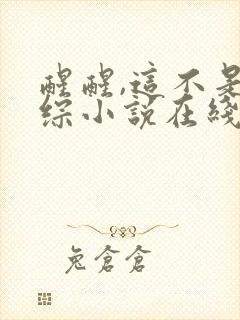 醒醒,這不是
綜小說在綫
兔倉倉